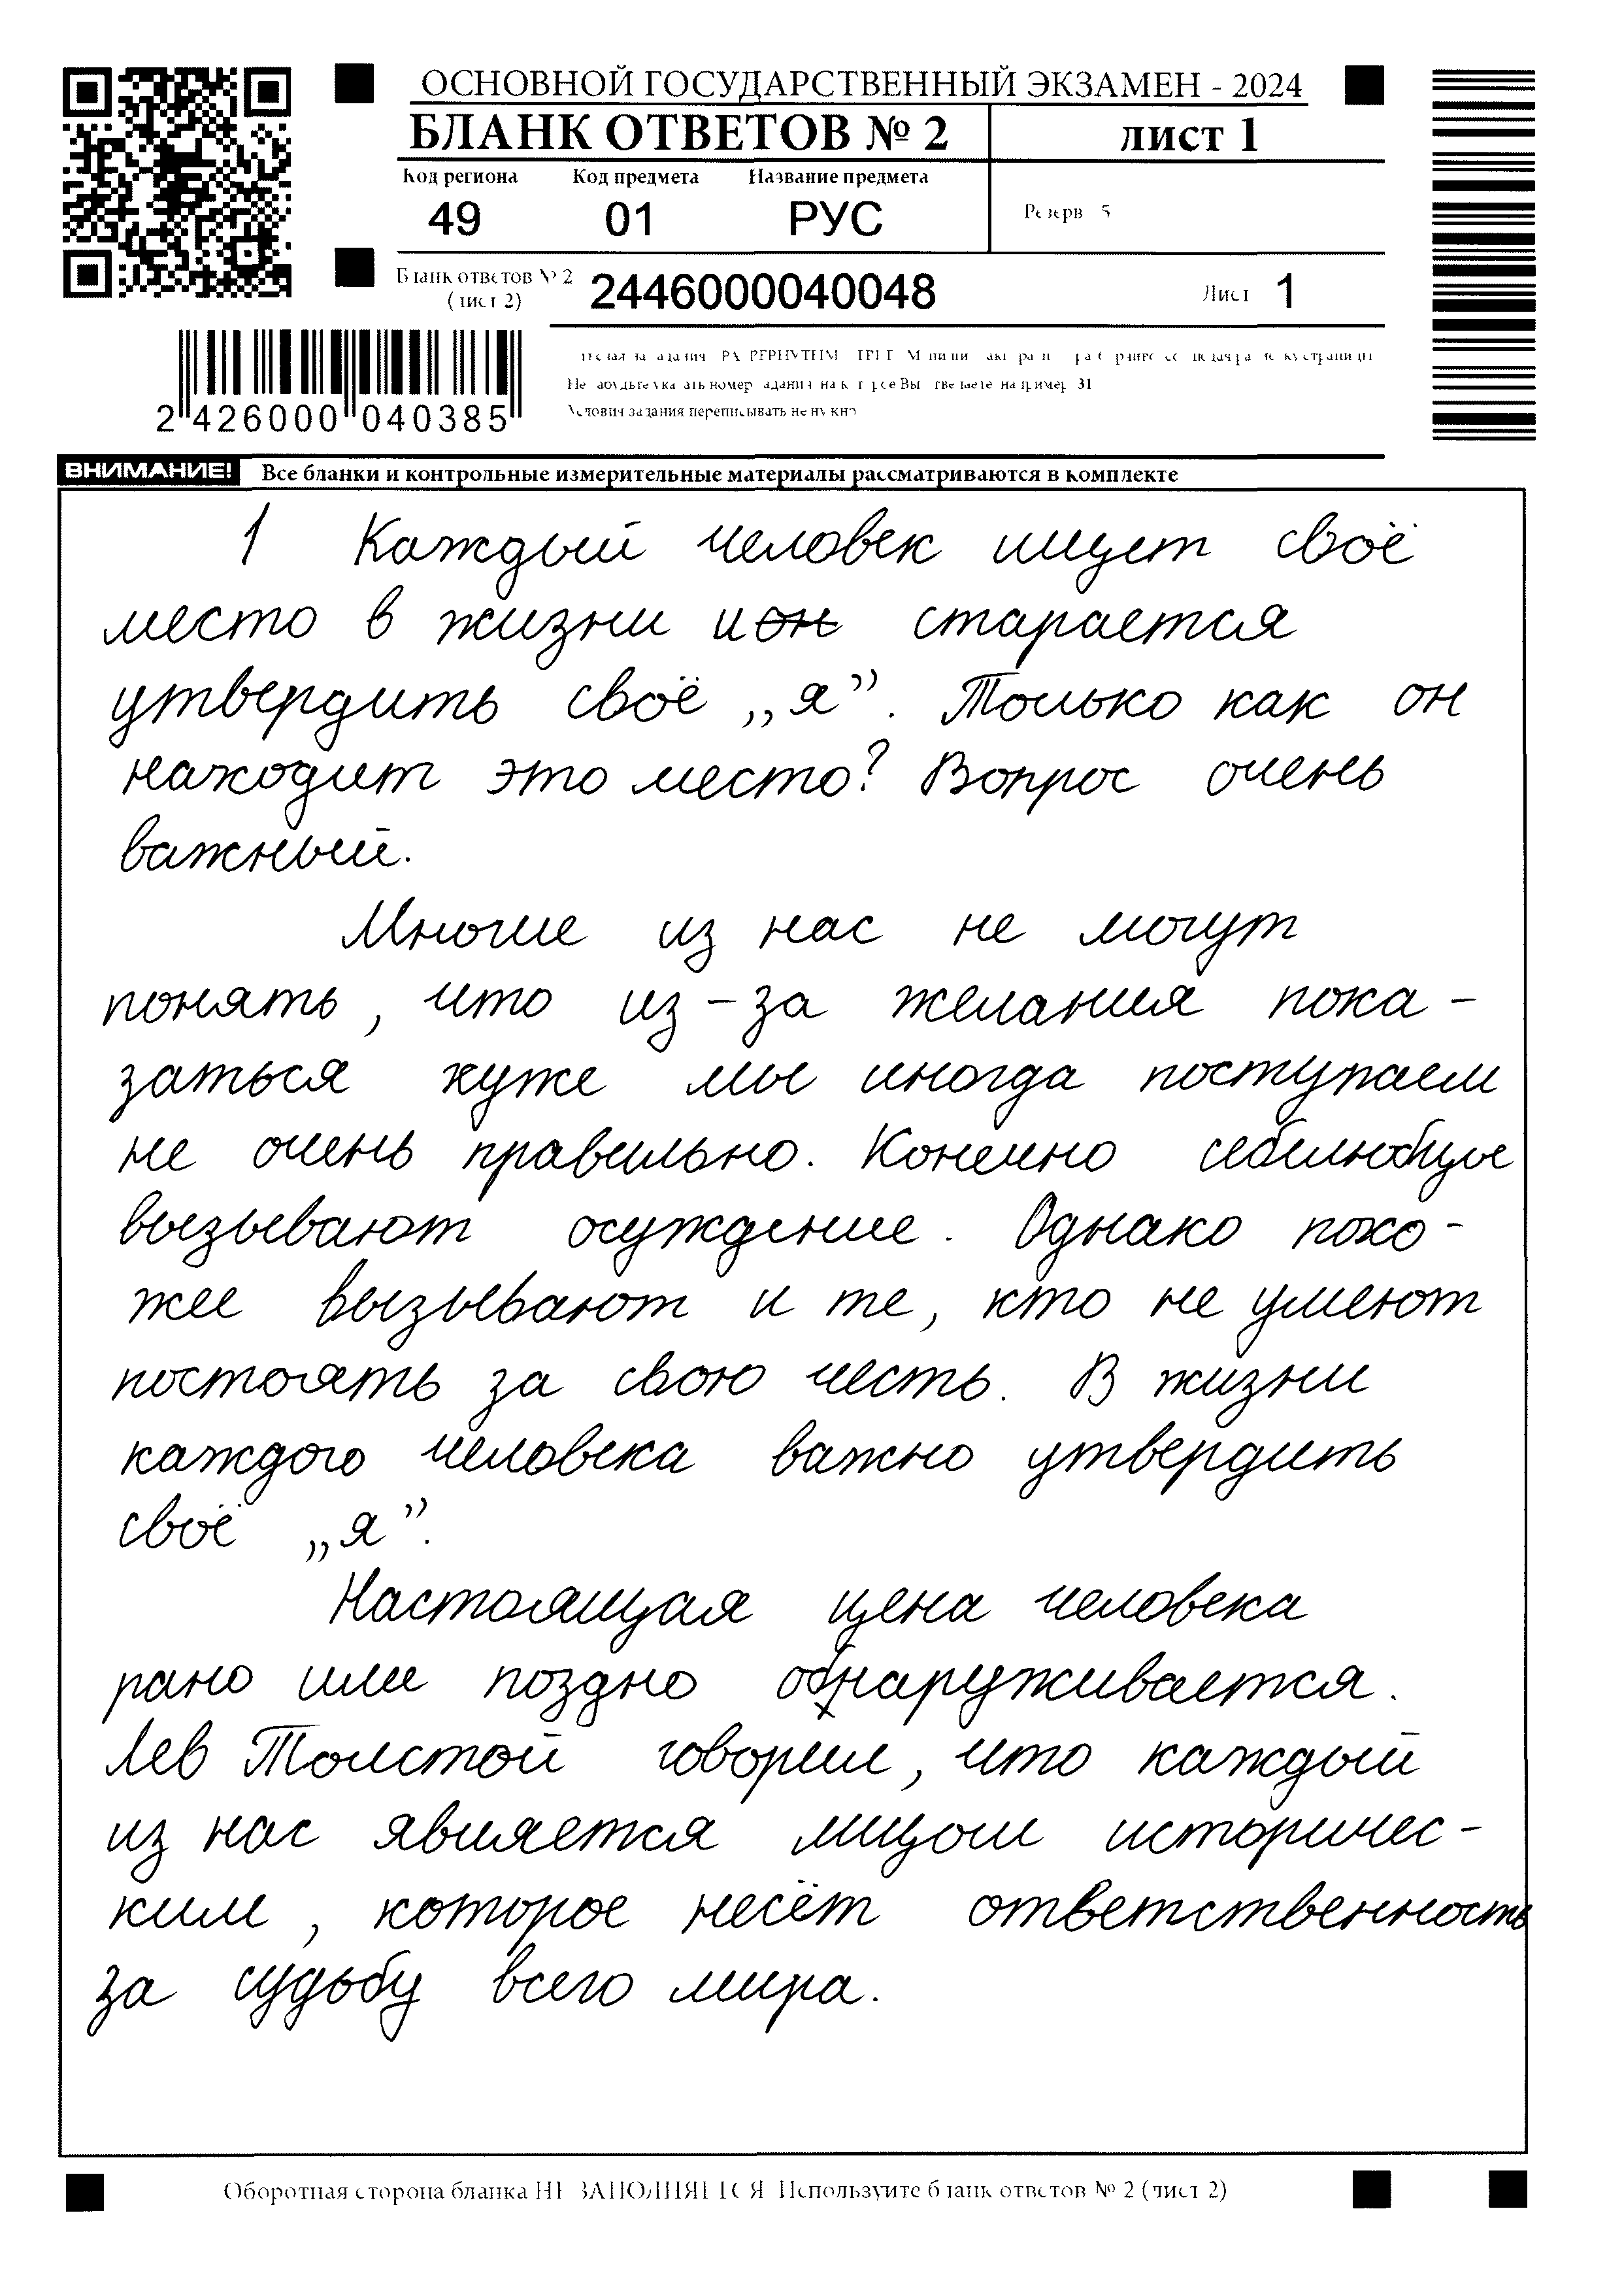 ОСНОВНОЙ ГОСУДАРСТВЕННЫЙ ЭКЗАМЕН - 2024
БЛАНК ОТВЕТОВ № 2 лист 1
Код региона Код предмета Название предмета
49 01 РУС Резерв 5
Бланк ответов № 2
(лист 2) 2446000040048 Лист 1
2 426000 040385
Условия задания переписывать не нужно
ВНИМАНИЕ! Все бланки и контрольные измерительные материалы рассматриваются в комплекте
1 Каждый человек ищет своё
место в жизни и он старается
утвердить своё „я”. Только как он
находит это место? Вопрос очень
важный.
Многие из нас не могут
понять, что из-за желания пока-
заться хуже мы иногда поступаем
не очень правильно. Конечно себялюбцые
вызывают осуждение. Однако похо-
жее вызывают и те, кто не умеют
постоять за свою честь. В жизни
каждого человека важно утвердить
своё „я”.
Настоящая цена человека
рано или поздно обнаруживается.
Лев Толстой говорил, что каждый
из нас является лицом историчес-
ким, которое несёт ответственность
за судьбу всего мира.
Оборотная сторона бланка НЕ ЗАПОЛНЯЕТСЯ Используйте бланк ответов № 2 (лист 2)